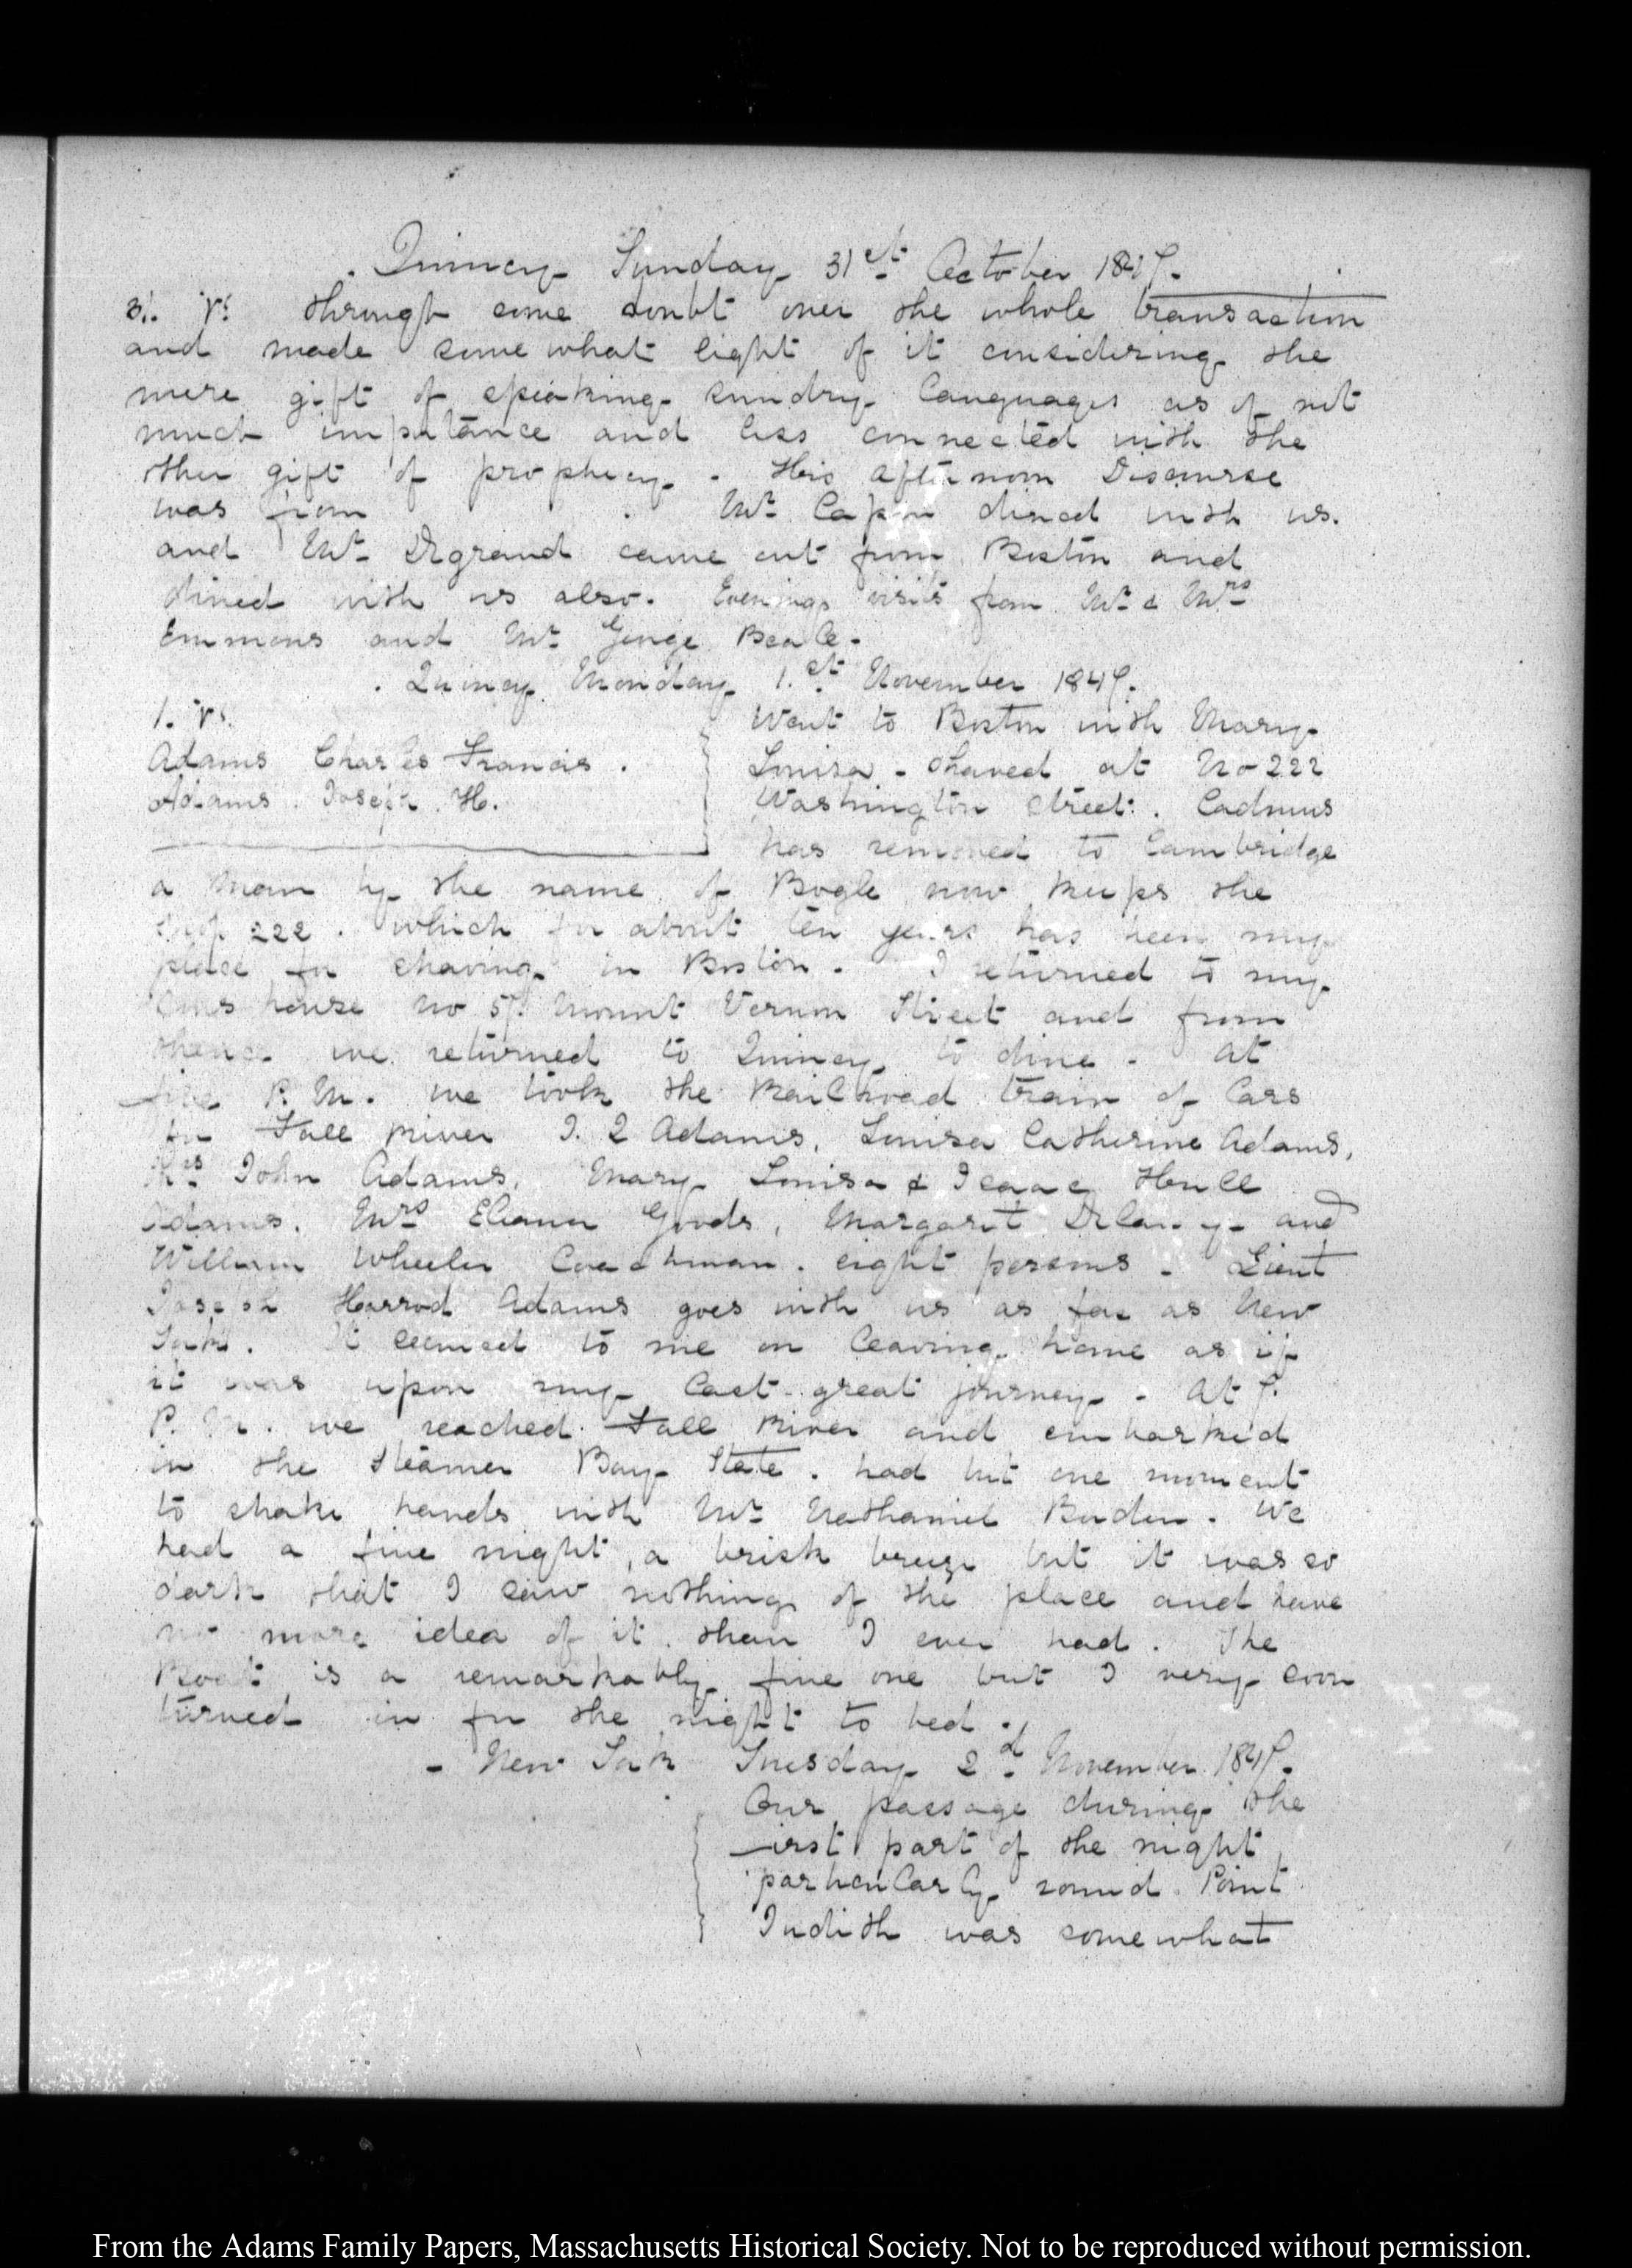 Quincy Sunday 31st October 1847.
31. V. through some doubt over the whole transaction
and made somewhat light of it considering the
mere gift of speaking sundry languages as of not
much importance and less connected with the
other gift of prophecy. His afternoon Discourse
was from . Mr. Capen dined with us.
and Mr. Degrand came out from Boston and
dined with us also. Evening visits from Mr. & Mrs
Emmons and Mr. George Beale.
Quincy Monday 1.st November 1847.
1. V.
Adams Charles Francis.
Adams. Joseph. H.
Went to Boston with Mary
Louisa - shaved at No 222
Washington Street. Cadmus
has removed to Cambridge
a man by the name of Bogle now keeps the
shop 222. which for about ten years has been my
place for shaving in Boston. I returned to my
Sons house No 57. Mount Vernon Street and from
thence we returned to Quincy to dine. At
five P.M. we took the Railroad train of Cars
for Fall River J. Q Adams, Louisa Catherine Adams,
Mrs John Adams, Mary Louisa & Isaac Hull
Adams. Mrs Eleanor Goods, Margaret Delany and
William Wheeler Coachman. eight persons. Lieut
Joseph Harrod Adams goes with us as far as New
York. It seemed to me on leaving home as if
it was upon my last great journey. At 7.
P.M. we reached Fall River and embarked
in the Steamer Bay State. had but one moment
to shake hands with Mr. Nathaniel Borden. We
had a fine night, a brisk breeze but it was so
dark that I saw nothing of the place and have
no more idea of it. than I ever had. The
Boat is a remarkably fine one but I very soon
turned in for the night to bed.
- New York Tuesday 2.d November 1847.
Our passage during the
first part of the night
particularly round Point
Judith was somewhat
From the Adams Family Papers, Massachusetts Historical Society. Not to be reproduced without permission.